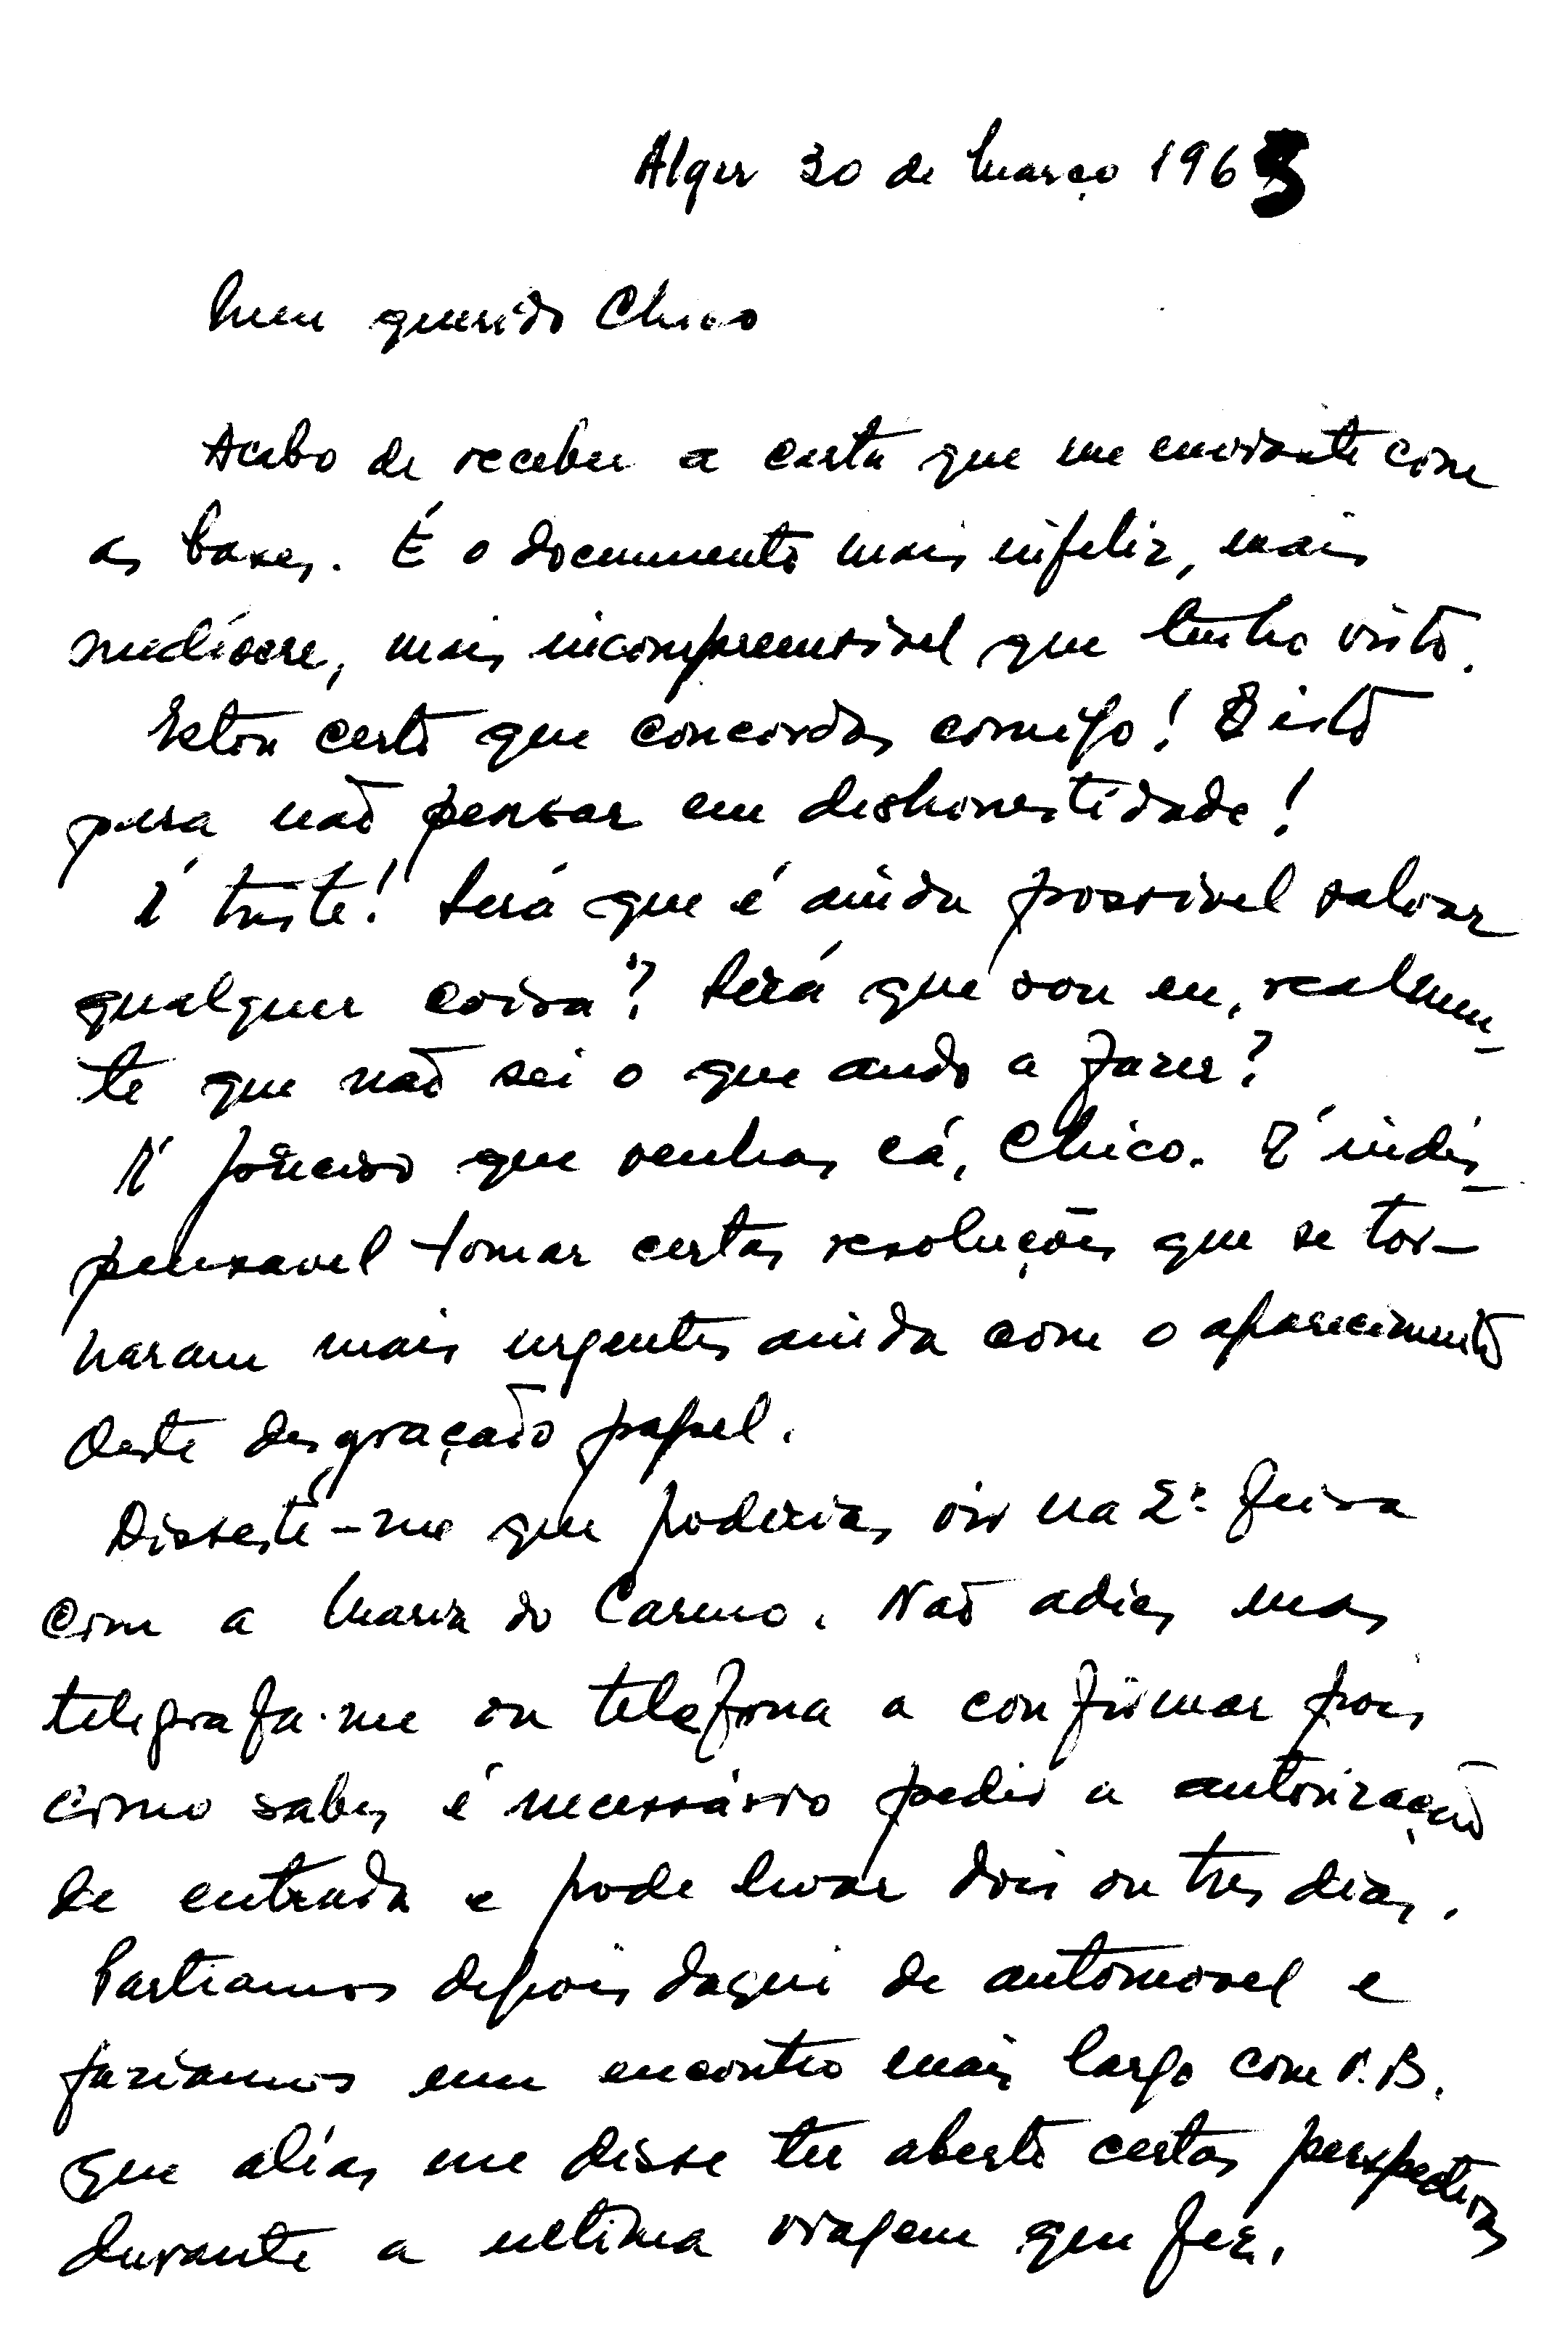 Alger 30 de Março 1965
Meu querido Chico
Acabo de receber a carta que me enviaste com
as bases. É o documento mais infeliz, mais
medíocre, mais incompreensivel que tenho visto.
Estou certo que concordas comigo! E isto
para não pensar em deshonestidade!
É triste! Será que é ainda possivel salvar
qualquer coisa? Será que sou eu, realmen_
te que não sei o que ando a fazer?
É preciso que venhas cá, Chico. É indis_
pensavel tomar certas resoluções que se tor-
naram mais urgentes ainda com o aparecimento
deste desgraçado papel.
Disseste-me que poderias vir na 2ª feira
com a Maria do Carmo. Não adies mas
telegrafa-me ou telefona a confirmar pois
como sabes é necessário pedir a autorização
de entrada e pode levar dois ou tres dias.
Partiamos depois daqui de automovel e
faziamos um encontro mais largo com P.B.
que aliás me disse ter aberto certas perspectivas
durante a ultima viagem que fez.